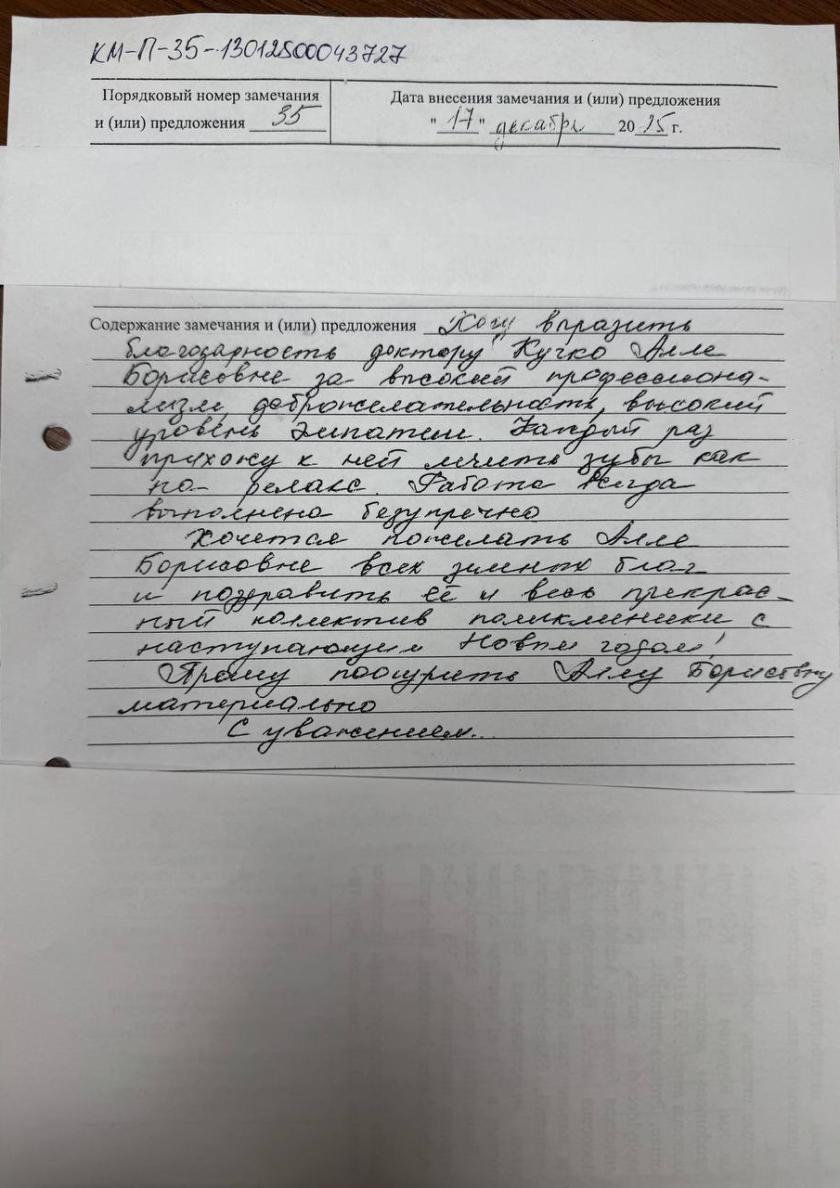 КМ-П-35-13012500043727
Порядковый номер замечания
и (или) предложения 35
Дата внесения замечания и (или) предложения
"17" декабря 2025 г.
Содержание замечания и (или) предложения Хочу выразить
благодарность доктору Кучко Алле
Борисовне за высокий профессиона-
лизм, доброжелательность, высокий
уровень эмпатии. Каждый раз
прихожу к ней лечить зубы как
на релакс. Работа всегда
выполнена безупречно
Хочется пожелать Алле
Борисовне всех земных благ
и поздравить её и весь прекрас-
ный коллектив поликлиники с
наступающим Новым годом!
Прошу поощрить Аллу Борисовну
материально
С уважением...